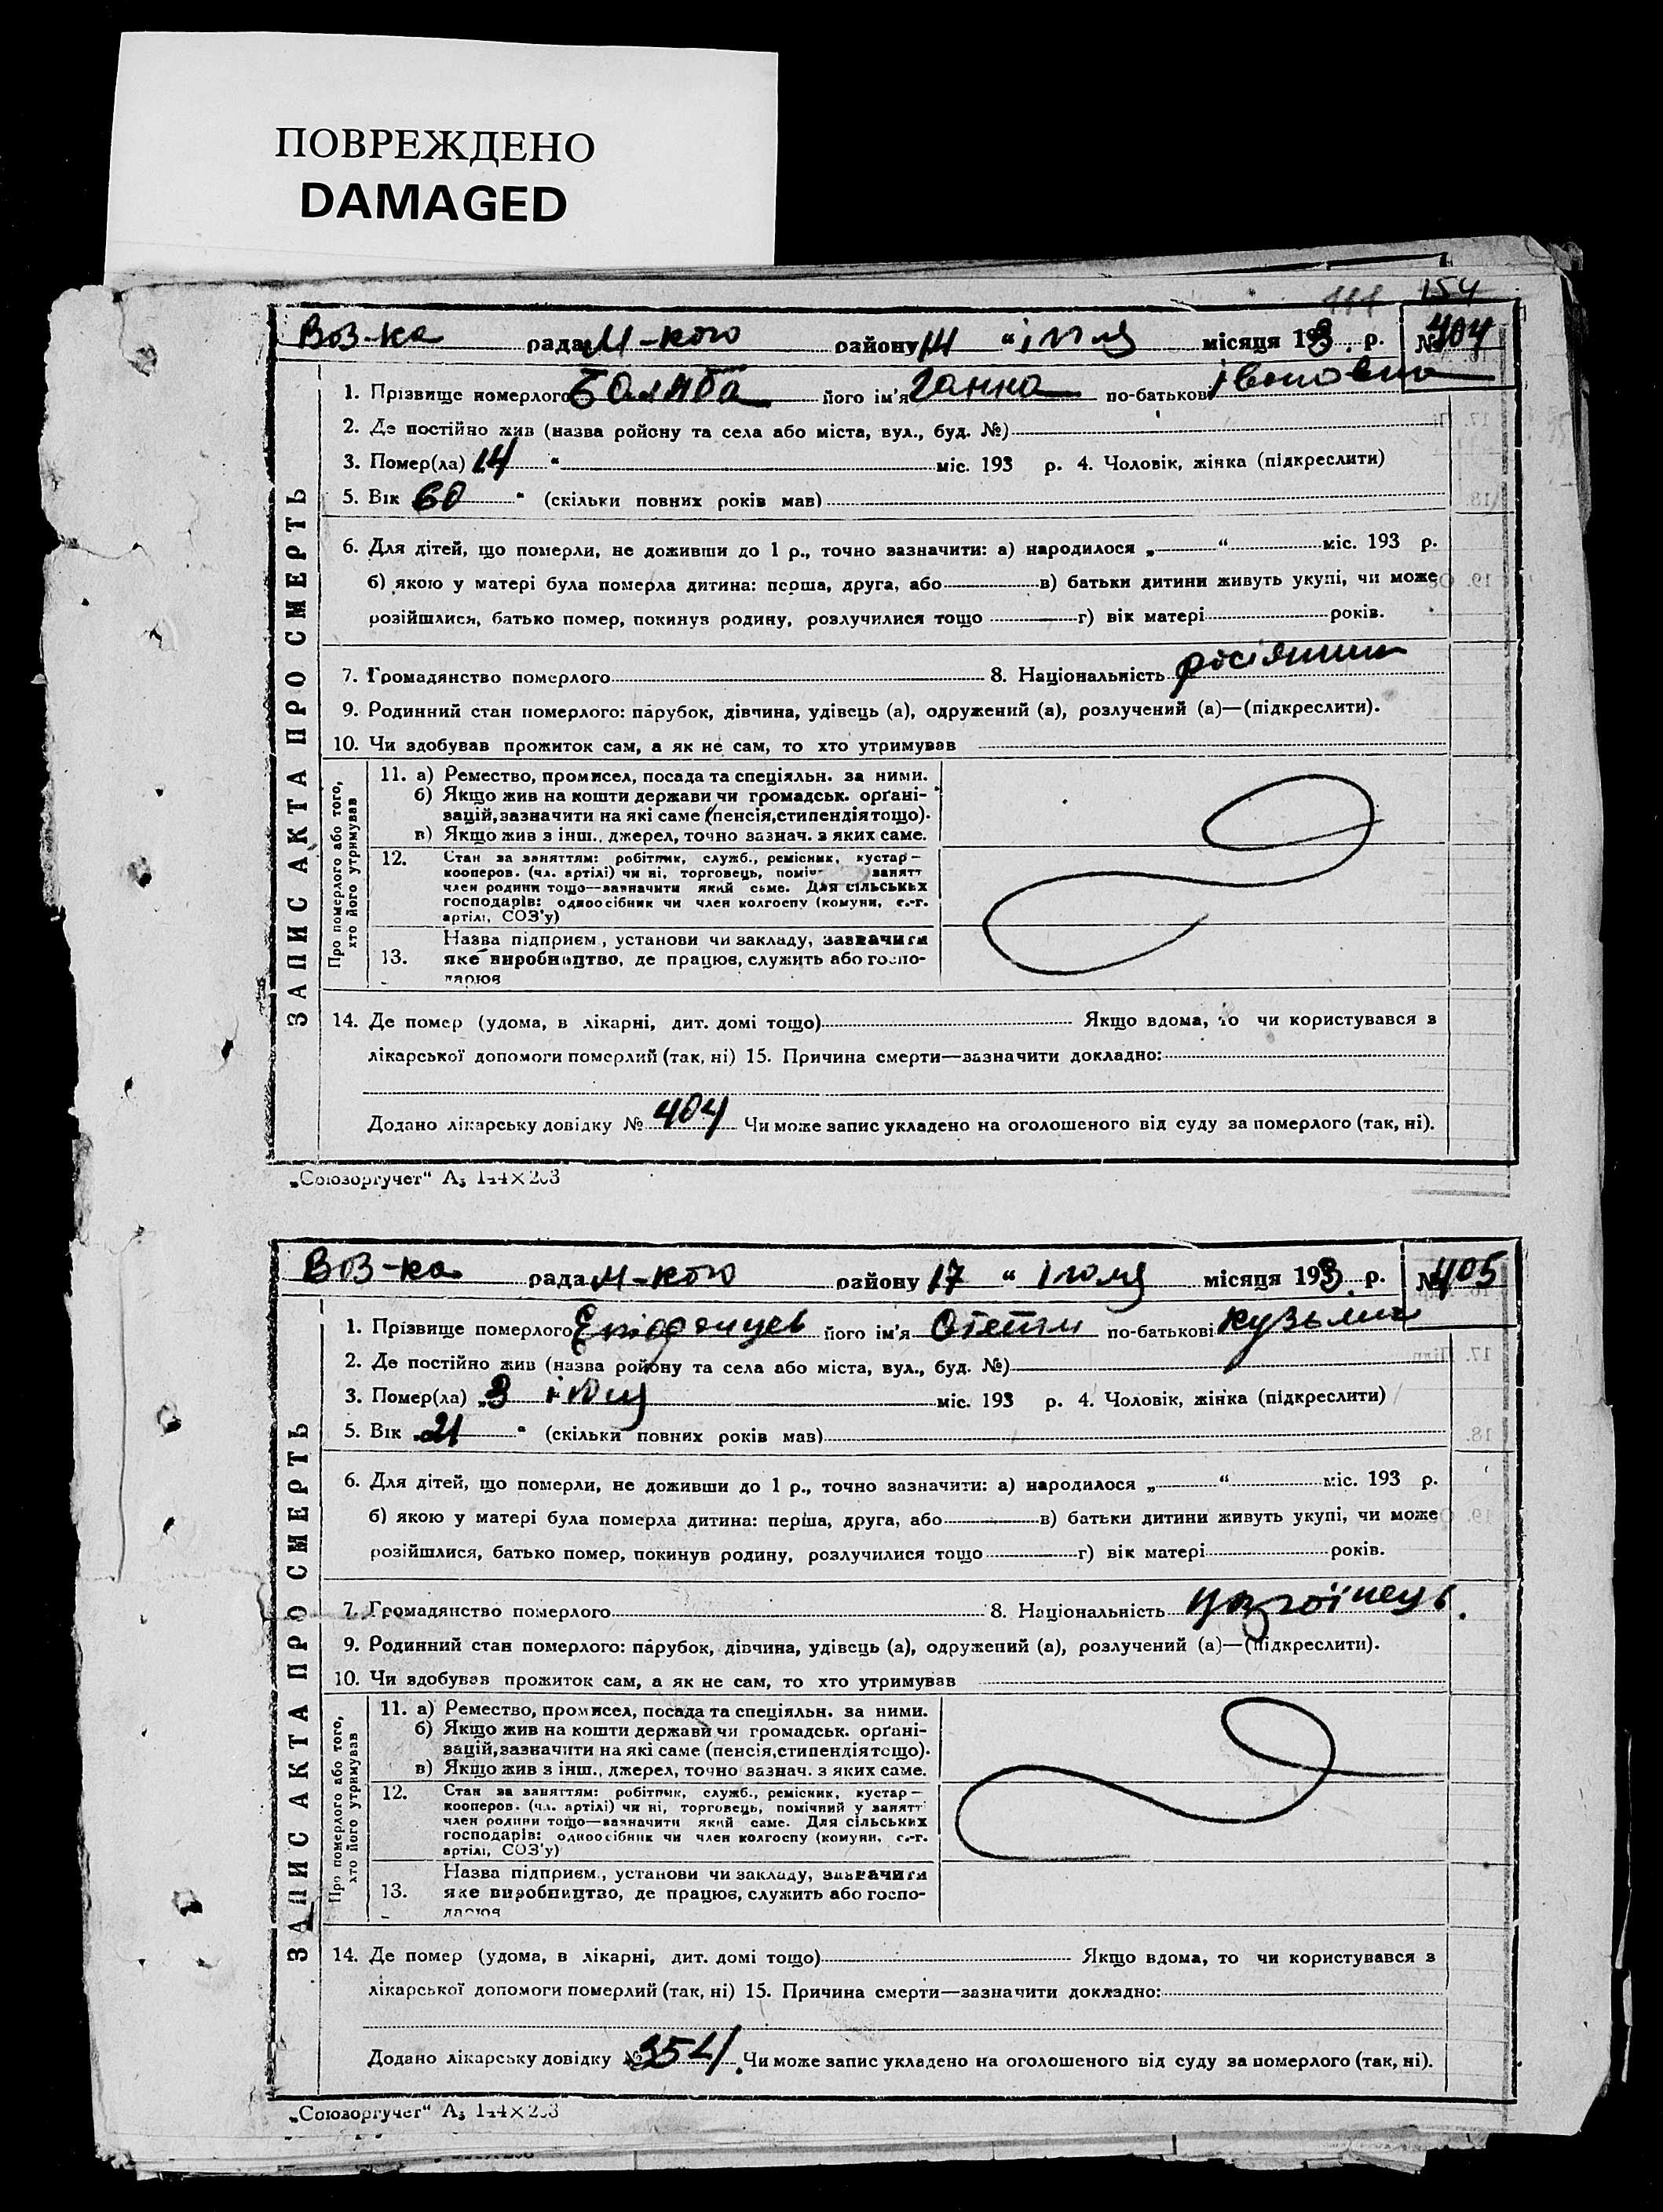 ПОВРЕЖДЕНО
DAMAGED
154
ВОВ-ка рада М-кого району 14 "іюля місяця 193 р. № 404
1. Прізвище померлого його ім'я Ганна по-батькові Івановна
2. Де постійно жив (назва ройону та села або міста, вул., буд. №)
3. Помер(ла) 14 " міс. 193 р. 4. Чоловік, жінка (підкреслити)
5. Вік 60 " (скільки повних років мав)
6. Для дітей, що померли, не доживши до 1 р., точно зазначити: а) народилося „ “ міс. 193 р.
б) якою у матері була померла дитина: перша, друга, або в) батьки дитини живуть укупі, чи може
розійшлися, батько помер, покинув родину, розлучилися тощо г) вік матері років.
7. Громадянство померлого 8. Національність росіянин
9. Родинний стан померлого: парубок, дівчина, удівець (а), одружений (а), розлучений (а)—(підкреслити).
10. Чи здобував прожиток сам, а як не сам, то хто утримував
ЗАПИС АКТА ПРО СМЕРТЬ
Про померлого або того, хто його утримував
11. а) Ремество, промисел, посада та спеціяльн. за ними.
б) Якщо жив на кошти держави чи громадськ. орґані-
зацій, зазначити на які саме (пенсія, стипендія тощо).
в) Якщо жив з інш., джерел, точно зазнач. з яких саме.
12. Стан за заняттям: робітник, служб., ремісник, кустар—
кооперов. (чл. артілі) чи ні, торговець, занятт
член родини тощо—зазначити який саме. Для сільських
господарів: одноосібник чи член колгоспу (комуни, с.-г.
артілі, СОЗ'у)
13. Назва підприєм., установи чи закладу, зазначити
яке виробництво, де працює, служить або госпо-
дарює
14. Де помер (удома, в лікарні, дит. домі тощо) Якщо вдома, то чи користувався з
лікарської допомоги померлий (так, ні) 15. Причина смерти—зазначити докладно:
Додано лікарську довідку № 404 Чи може запис укладено на оголошеного від суду за померлого (так, ні).
„Союзоргучет“ А₅ 144×203
ВОВ-ка рада М-кого району 17 " іюля місяця 193 р. № 405
1. Прізвище померлого його ім'я по-батькові Кузьми
2. Де постійно жив (назва ройону та села або міста, вул., буд. №)
3. Помер(ла) „3 міс. 193 р. 4. Чоловік, жінка (підкреслити)
5. Вік 21 " (скільки повних років мав)
6. Для дітей, що померли, не доживши до 1 р., точно зазначити: а) народилося „ “ міс. 193 р.
б) якою у матері була померла дитина: перша, друга, або в) батьки дитини живуть укупі, чи може
розійшлися, батько помер, покинув родину, розлучилися тощо г) вік матері років.
7. Громадянство померлого 8. Національність
9. Родинний стан померлого: парубок, дівчина, удівець (а), одружений (а), розлучений (а)—(підкреслити).
10. Чи здобував прожиток сам, а як не сам, то хто утримував
ЗАПИС АКТА ПРО СМЕРТЬ
Про померлого або того, хто його утримував
11. а) Ремество, промисел, посада та спеціяльн. за ними.
б) Якщо жив на кошти держави чи громадськ. орґані-
зацій, зазначити на які саме (пенсія, стипендія тощо).
в) Якщо жив з інш., джерел, точно зазнач. з яких саме.
12. Стан за заняттям: робітник, служб., ремісник, кустар—
кооперов. (чл. артілі) чи ні, торговець, помічний у занятт
член родини тощо—зазначити який саме. Для сільських
господарів: одноосібник чи член колгоспу (комуни, с.-г.
артілі, СОЗ'у)
13. Назва підприєм., установи чи закладу, зазначити
яке виробництво, де працює, служить або госпо-
дарює
14. Де помер (удома, в лікарні, дит. домі тощо) Якщо вдома, то чи користувався з
лікарської допомоги померлий (так, ні) 15. Причина смерти—зазначити докладно:
Додано лікарську довідку № 354 Чи може запис укладено на оголошеного від суду за померлого (так, ні).
„Союзоргучет“ А₅ 144×203